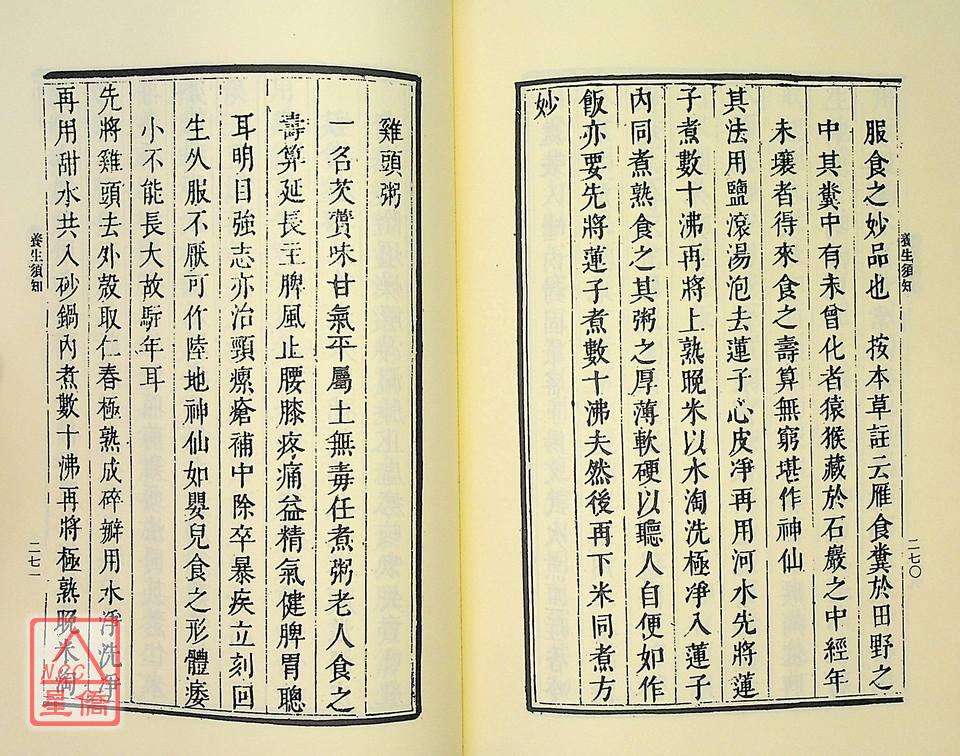 服食之妙品也 按本草註云雁食糞於田野之
中其糞中有未曾化者猿猴藏於石巖之中經年
未壞者得來食之壽算無窮堪作神仙
其法用鹽滾湯泡去蓮子心皮淨再用河水先將蓮
子煮數十沸再將上熟晚米以水淘洗極淨入蓮子
內同煮熟食之其粥之厚薄軟硬以聽人自便如作
飯亦要先將蓮子煮數十沸夫然後再下米同煮方
妙
養生須知
二七〇
雞頭粥
一名芡實味甘氣平屬土無毒任煮粥老人食之
壽算延長主脾風止腰膝疼痛益精氣健脾胃聰
耳明目強志亦治頸瘰瘡補中除卒暴疾立刻回
生久服不厭可作陸地神仙如嬰兒食之形體痿
小不能長大故駐年耳
先將雞頭去外殼取仁舂極熟成碎瓣用水淨洗淨
再用甜水共入砂鍋內煮數十沸再將極熟晚米淘
養生須知
二七一
NCC
星僑